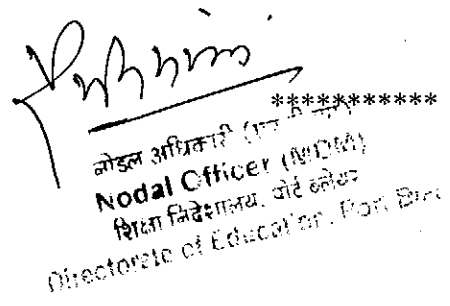 ***********
नोडल अधिकारी
Nodal Officer (MDM)
शिक्षा निदेशालय, पोर्ट ब्लेयर
Directorate of Education, Port